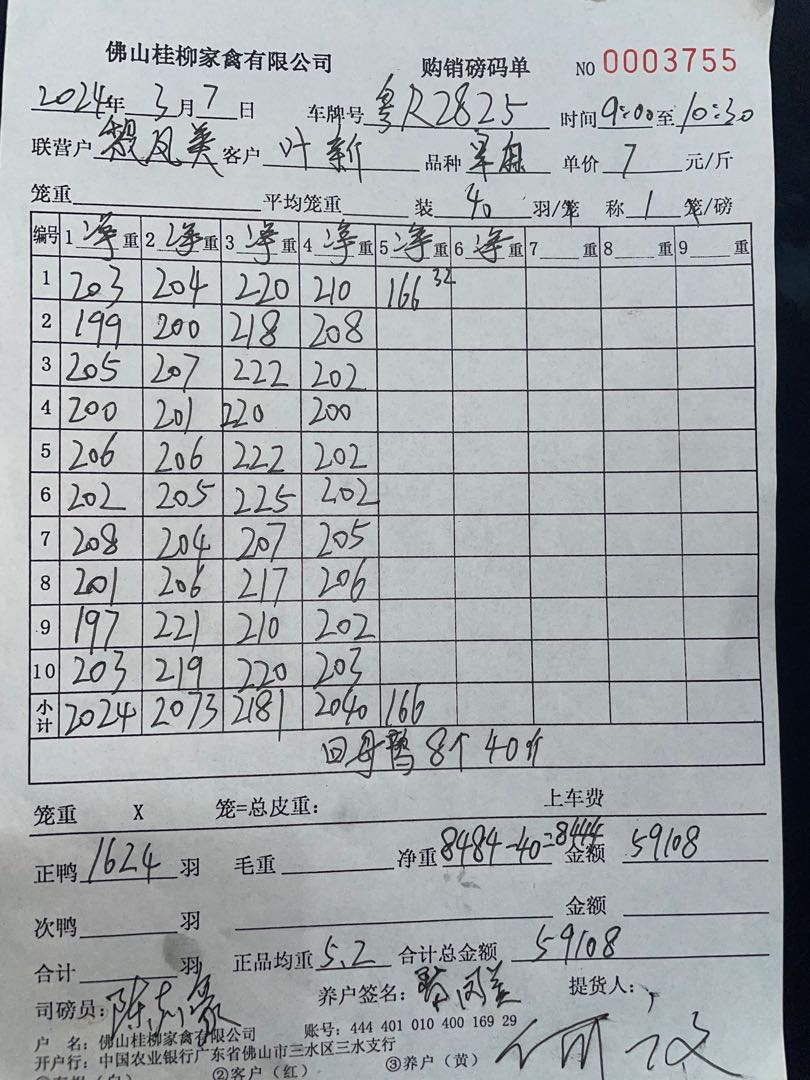 佛山桂柳家禽有限公司 购销磅码单 NO 0003755
2024年 3月 7日 车牌号 粤R2825 时间 9:00至10:30
联营户 凤美 客户 叶新 品种 单价 7 元/斤
笼重 平均笼重 装 40 羽/笼 称 1 笼/磅
编号 1 净重 2 净重 3 净重 4 净重 5 净重 6 净重 7 重 8 重 9 重
1 203 204 220 210 166 32
2 199 200 218 208
3 205 207 222 202
4 200 201 220 200
5 206 206 222 202
6 202 205 225 202
7 208 204 207 205
8 201 206 217 206
9 197 221 210 202
10 203 219 220 203
小计 2024 2073 2181 2040 166
回母鸭8个40斤
笼重 X 笼=总皮重: 上车费
正鸭 1624 羽 毛重 净重 8484-40=8444 金额 59108
次鸭 羽 金额
合计 羽 正品均重 5.2 合计总金额 59108
司磅员: 陈志 养户签名: 凤美 提货人:
户 名: 佛山桂柳家禽有限公司 账号: 444 401 010 400 169 29
开户行: 中国农业银行广东省佛山市三水区三水支行
②客户(红) ③养户(黄)